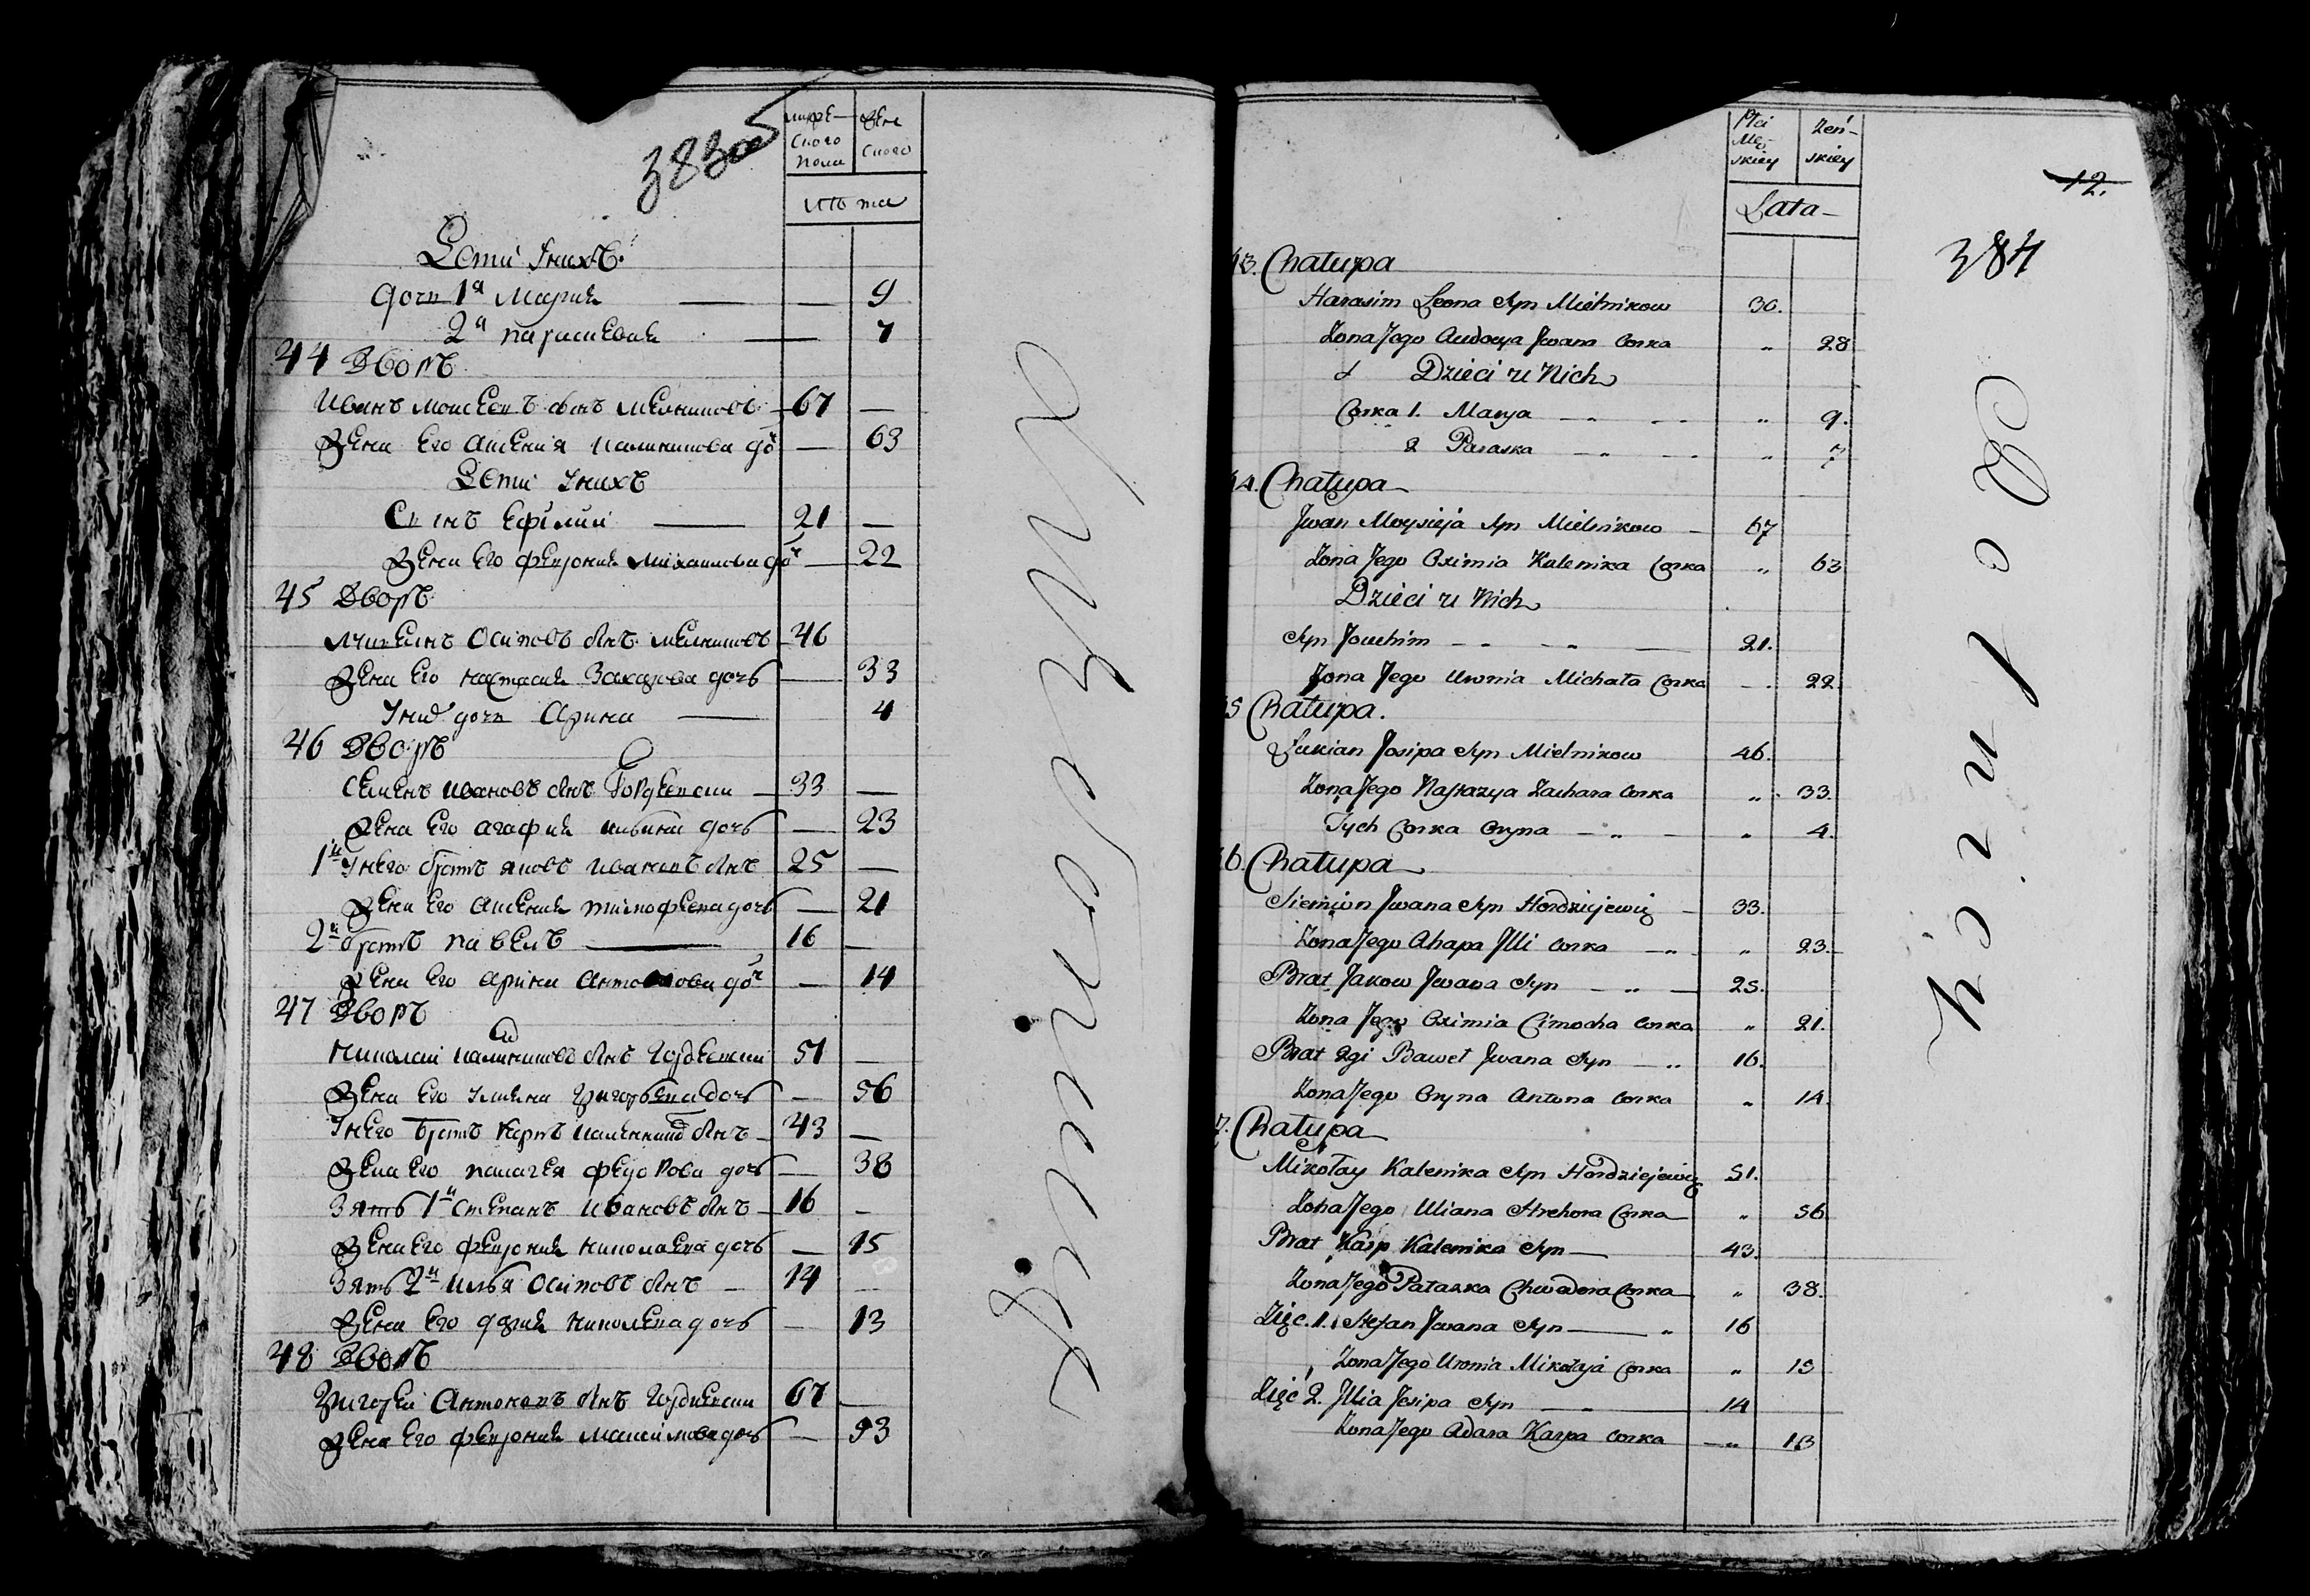 383об
мужескаго пола
женскаго
лѣта
Дети Унихъ
дочь 1я Мария — — 9
2я параскевия — — 7
44 Дворъ
Иванъ моисеевъ сынъ мелниковъ — 67 —
Жена Его Аксения калиникова дочь — 63
Дети Унихъ
Сынъ Ефимий — 21 —
Жена Его феврония михаилова дочь — 22
45 Дворъ
Осиповъ сынъ мелниковъ — 46
Жена Его настасия Захарова дочь — 33
Унихъ дочь Арина — 4
46 Дворъ
Семенъ Ивановъ сынъ — 33 —
Жена Его агафия дочь — 23
1й Унего братъ яковъ Ивановъ сынъ 25 —
Жена Его Аксения тимофеева дочь — 21
2й братъ павелъ — 16 —
Жена Его арина Антонова дочь — 14
47 Дворъ
Николай калиниковъ сынъ 51 —
Жена Его Улияна григорьева дочь — 56
Унего братъ карпъ сынъ — 43 —
Жена Его палагея федорова дочь — 38
Зять 1й степанъ Ивановъ сынъ — 16 —
Жена Его феврония николаева дочь — 15
Зять 2й илья Осиповъ сынъ — 14 —
Жена Его дария дочь — 13
48 Дворъ
григорей Антоновъ сынъ 67 —
Жена Его феврония дочь — 53
Płci Męskiey
Żeńskiey
Lata
12.
384
43. Chałupa
Harasim Leona Syn Mielnikow 30.
Żona Jego Audocya Jwana Corka „ 28
Dzieci u Nich
Corka 1. Marya — „ 9.
2 Paraska — „ 7
44. Chałupa
Jwan Moysieja Syn Mielnikow — 67
Żona Jego Oximia Kalenika Corka „ 63
Dzieci u Nich
Syn Jouchim — 21.
Żona Jego Uwnia Michała Corka — 22.
45 Chałupa.
Łukian Josipa Syn Mielnikow 46.
Żona Jego Nastazya Zachara Corka „ 33.
Tych Corka Oryna — „ 4.
46. Chałupa
Siemion Jwana Syn Hordziejewicz — 33.
Żona Jego Ahapa Jlli Corka — „ 23.
Brat Jakow Jwana Syn — 25.
Żona Jego Oximia Cimocha Corka „ 21.
Brat 2gi Paweł Jwana Syn — 16.
Żona Jego Oryna Antona Corka „ 14.
47. Chałupa
Mikołay Kalenika Syn Hordziejewicz 51.
Żona Jego Uliana Hrehora Corka „ 56
Brat Karp Kalenika Syn — 43.
Żona Jego Pałaska Chwedora Corka „ 38.
Zięć 1. Stefan Jwana Syn — 16
Żona Jego Uwnia Mikołaja Corka „ 15
Zięć 2. Jllia Josipa Syn — 14
Żona Jego Adara Karpa Corka — „ 13